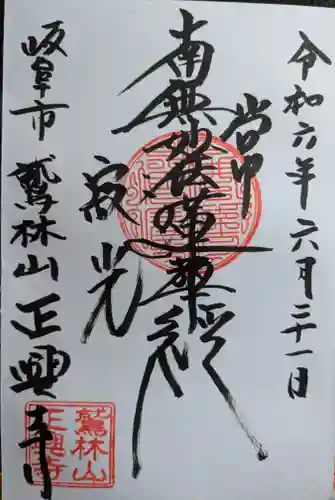 令和六年六月二十一日
常
南無妙法蓮華経
寂光
岐阜市 鷲林山 正興寺
鷲林山
正興寺